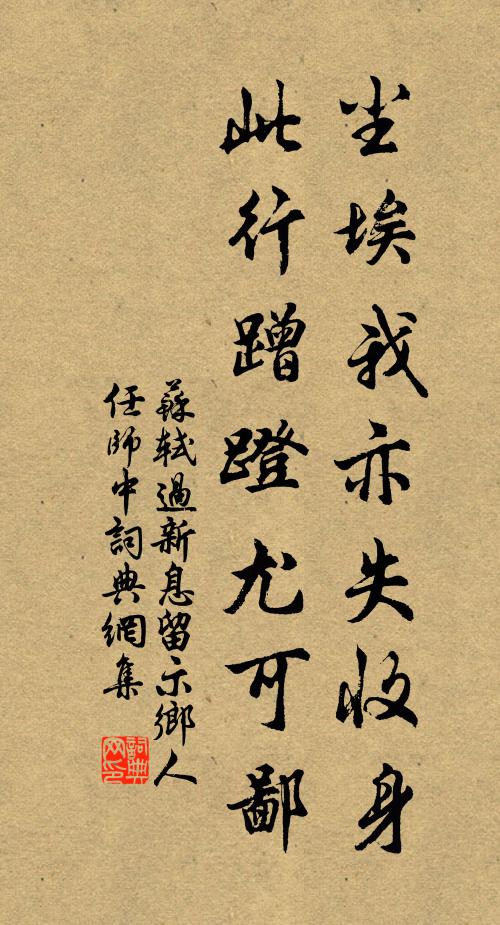 尘埃我亦失收身
此行蹭蹬尤可鄙
蘇軾過新息留示鄉人
任師中詞典網集
詞典网印